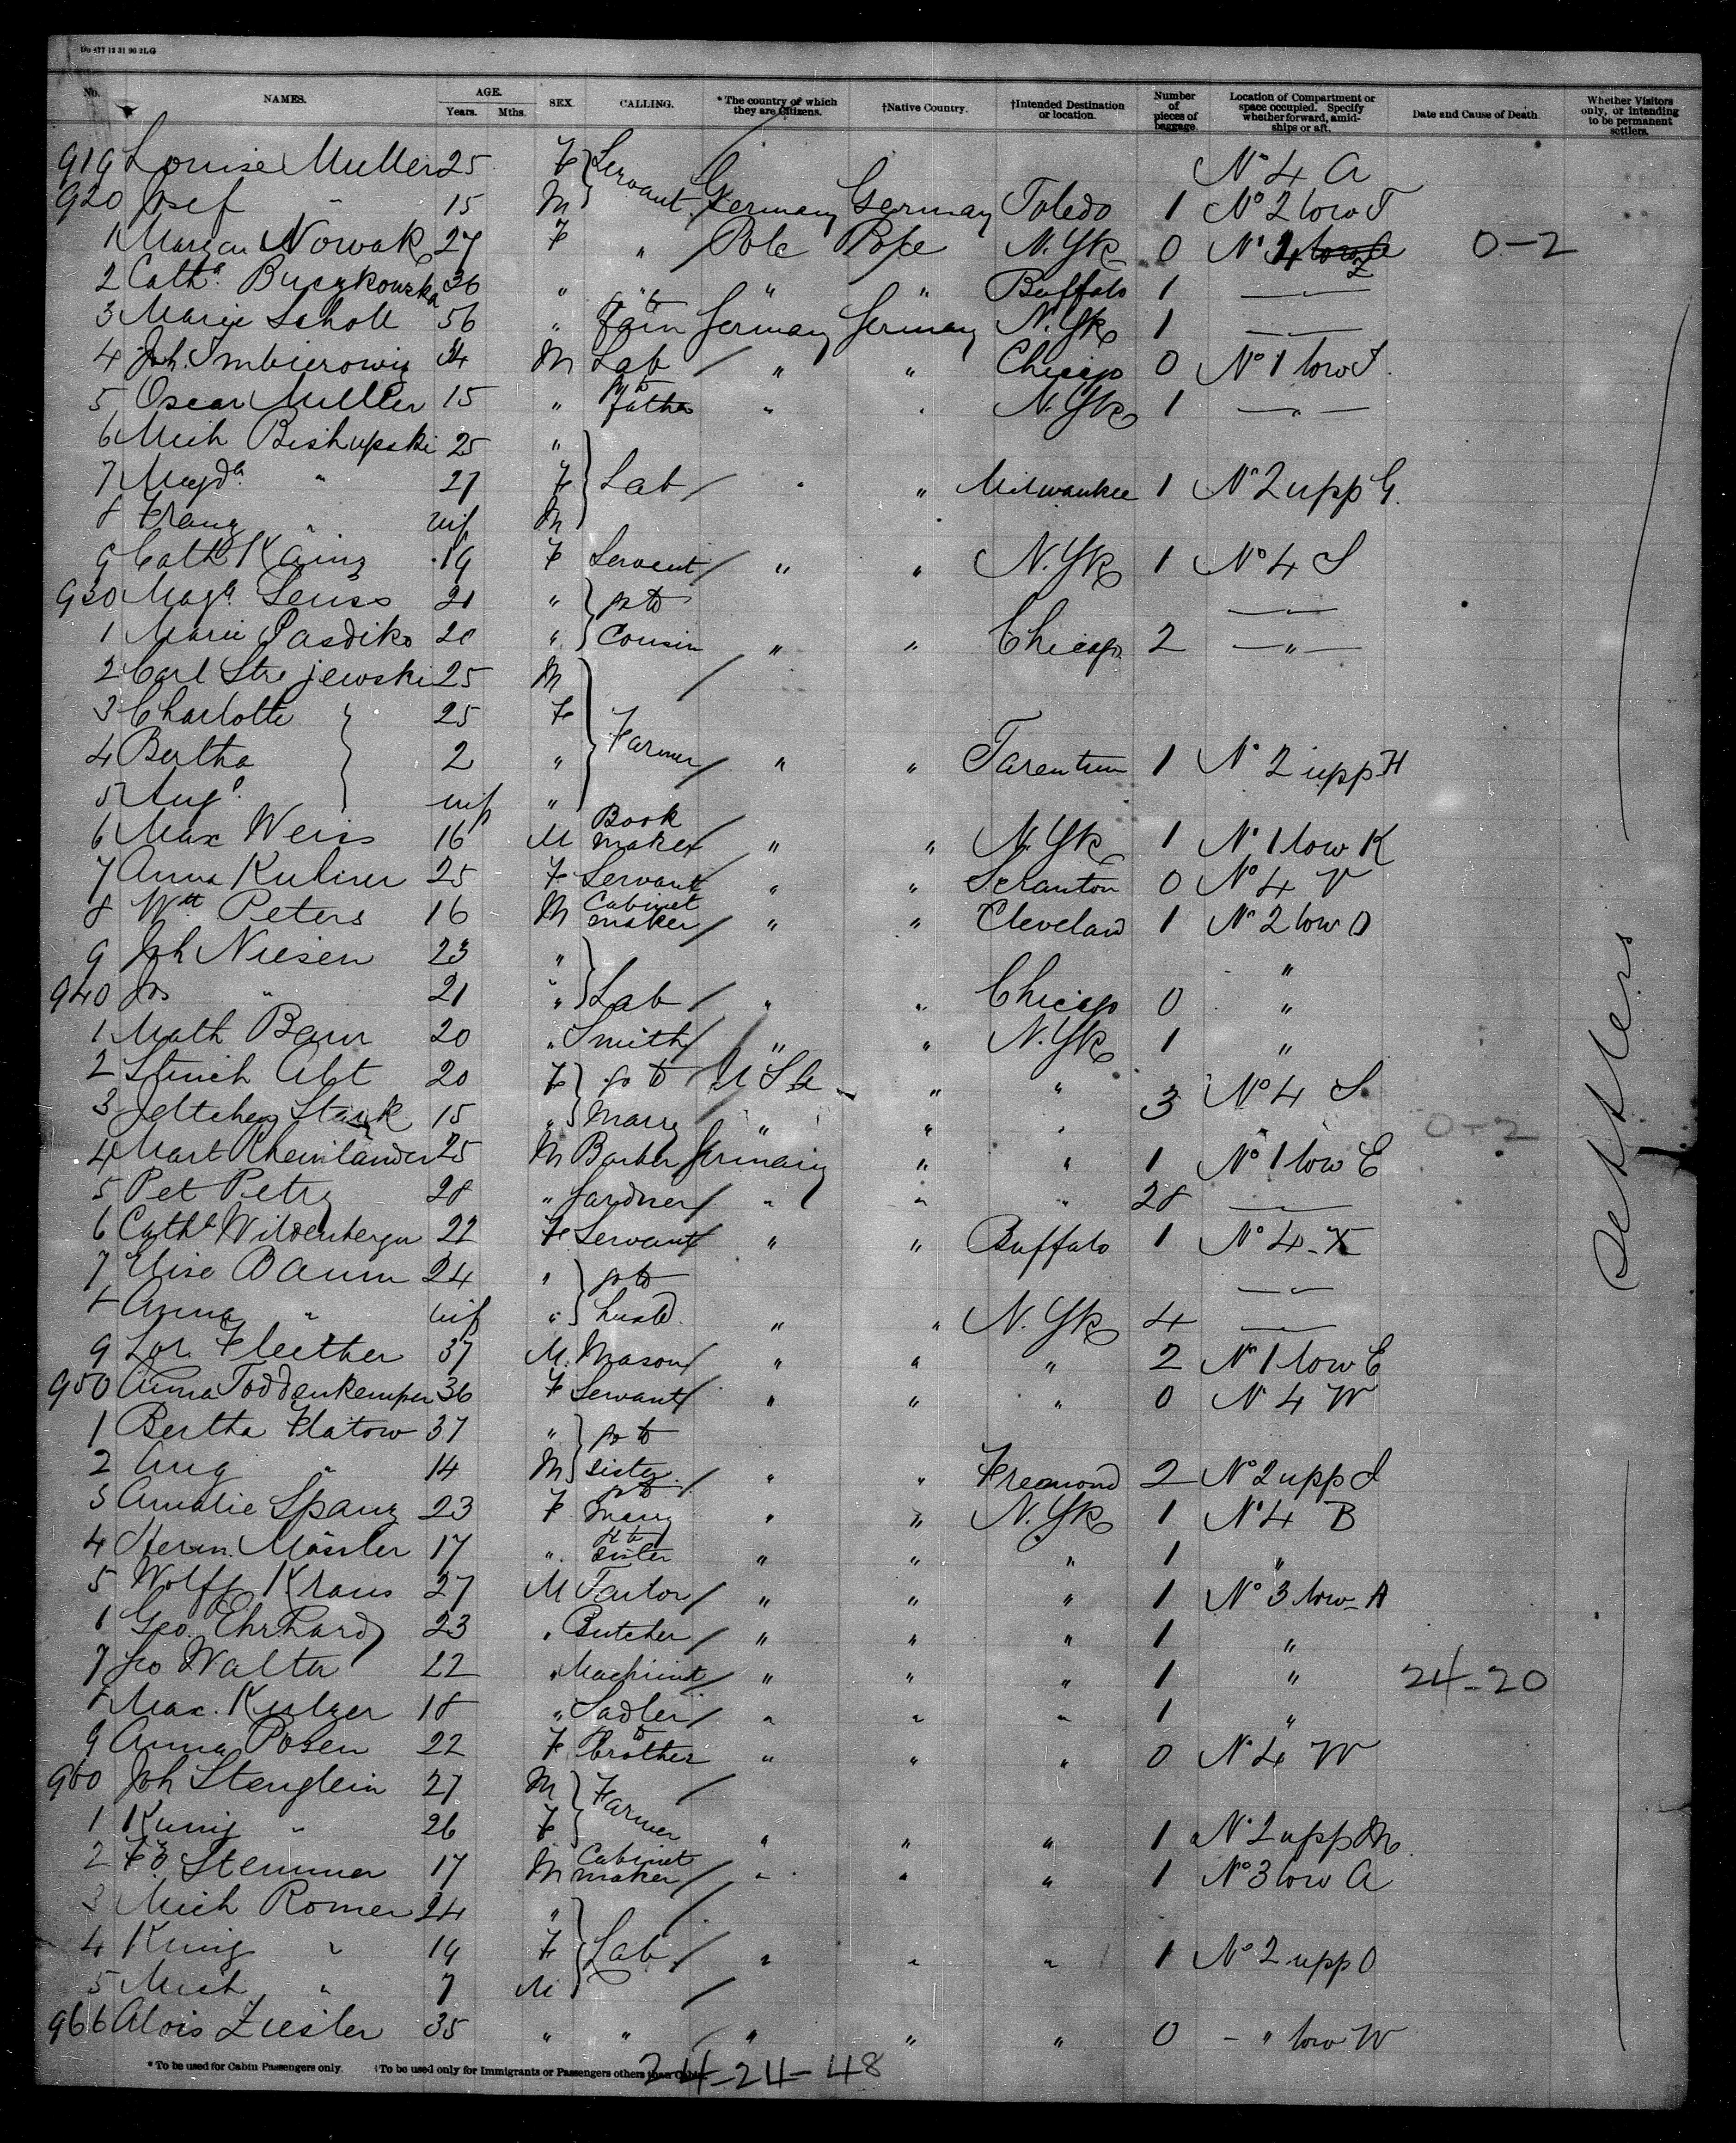 No. NAMES. AGE. Years. Mths. SEX. CALLING. *The country of which they are Citizens. †Native Country. †Intended Destination or location. Number of pieces of baggage Location of Compartment or space occupied. Specify whether forward, amidships or aft. Date and Cause of Death. Whether Visitors only, or intending to be permanent settlers.
919 Louise Muller 25 F Servant Nº 4 A
920 Josef " 15 M Germany Germany Toledo 1 Nº 2 low T
1 Nowak 27 F " Pole Pole N.Yk 0 Nº 4 0-2
2 Cathª Buczkowska 36 " " " " Buffalo 1 — " —
3 Marie Scholl 56 " Germany Germany N.Yk 1 — " —
4 Joh. Imbierowiz 34 M Lab " " Chicago 0 Nº 1 low
5 Oscar Muller 15 " father " " N.Yk 1 — " —
6 Mich Bishupski 25 "
7 Magdª " 27 F Lab " " Milwaukee 1 Nº 2 upp G.
8 Franz " inf M
9 Cath Kainz 19 F Servant " " N.Yk 1 Nº 4 S
930 Magª 21 " go to — " —
1 Marie Pasdiko 20 " Cousin " " Chicago 2 — " —
2 Carl Strejewski 25 M
3 Charlotte 25 F
4 Bertha 2 " Farmer " " Tarentum 1 Nº 2 upp H
5 Aug. inf "
6 Max Weiss 16 M Book maker " " N.Yk 1 Nº 1 low K
7 Anna 25 F Servant " " Scranton 0 Nº 4 V
8 Wm Peters 16 M Cabinet maker " " Cleveland 1 Nº 2 low O
9 Joh Niesen 23 " "
940 Jos " 21 " Lab " " Chicago 0 "
1 Math Baur 20 " Smith " " N.Yk 1 "
2 Abt 20 F go to U S A " "
3 Stark 15 " Marry " " " 3 Nº 4 S. 0-2
4 Mart Rheinlander 25 M Barber Germany " " 1 Nº 1 low E
5 Pet Petry 28 " Gardner " " " 28 — " —
6 Cathª Wildenberger 22 F Servant " " Buffalo 1 Nº 4 X
7 Elise Baum 24 " go to — " —
8 Anna " inf " husbd. " " N.Yk 4 — " —
9 Lor. Fleither 37 M. Mason " " " 2 Nº 1 low E
950 Anna Toddenkemper 36 F Servant " " " 0 Nº 4 W
1 Bertha Flatow 37 " go to
2 Aug " 14 M sister " " Freemond 2 Nº 2 upp I
3 Amalie Spanz 23 F go to marry " " N.Yk 1 Nº 4 B
4 Herm. Mössler 17 " sister " " " 1 "
5 Wolff Kraus 27 M Tailor " " " 1 Nº 3 low A
6 Geo. Ehrhard 23 " Butcher " " " 1 "
7 Leo Walter 22 " Machinist " " " 1 " 24-20
8 Max. Kulzer 18 " Sadler " " " 1 "
9 Anna Posen 22 F to brother " " " 0 Nº 4 W
960 Joh Stenglein 27 M Farmer
1 Kunig " 26 F " " " 1 Nº 2 upp M
2 Fz. Stemmer 17 M Cabinet maker " " " 1 Nº 3 low A
3 Mich Romer 24 "
4 Kunig " 19 F Lab. " " " 1 Nº 2 upp O
5 Mich " 7 M
966 Alois Ziesler 35 " " " " " 0 - " low W
Settlers
*To be used for Cabin Passengers only. †To be used only for Immigrants or Passengers others than Cabin.
24-24-48